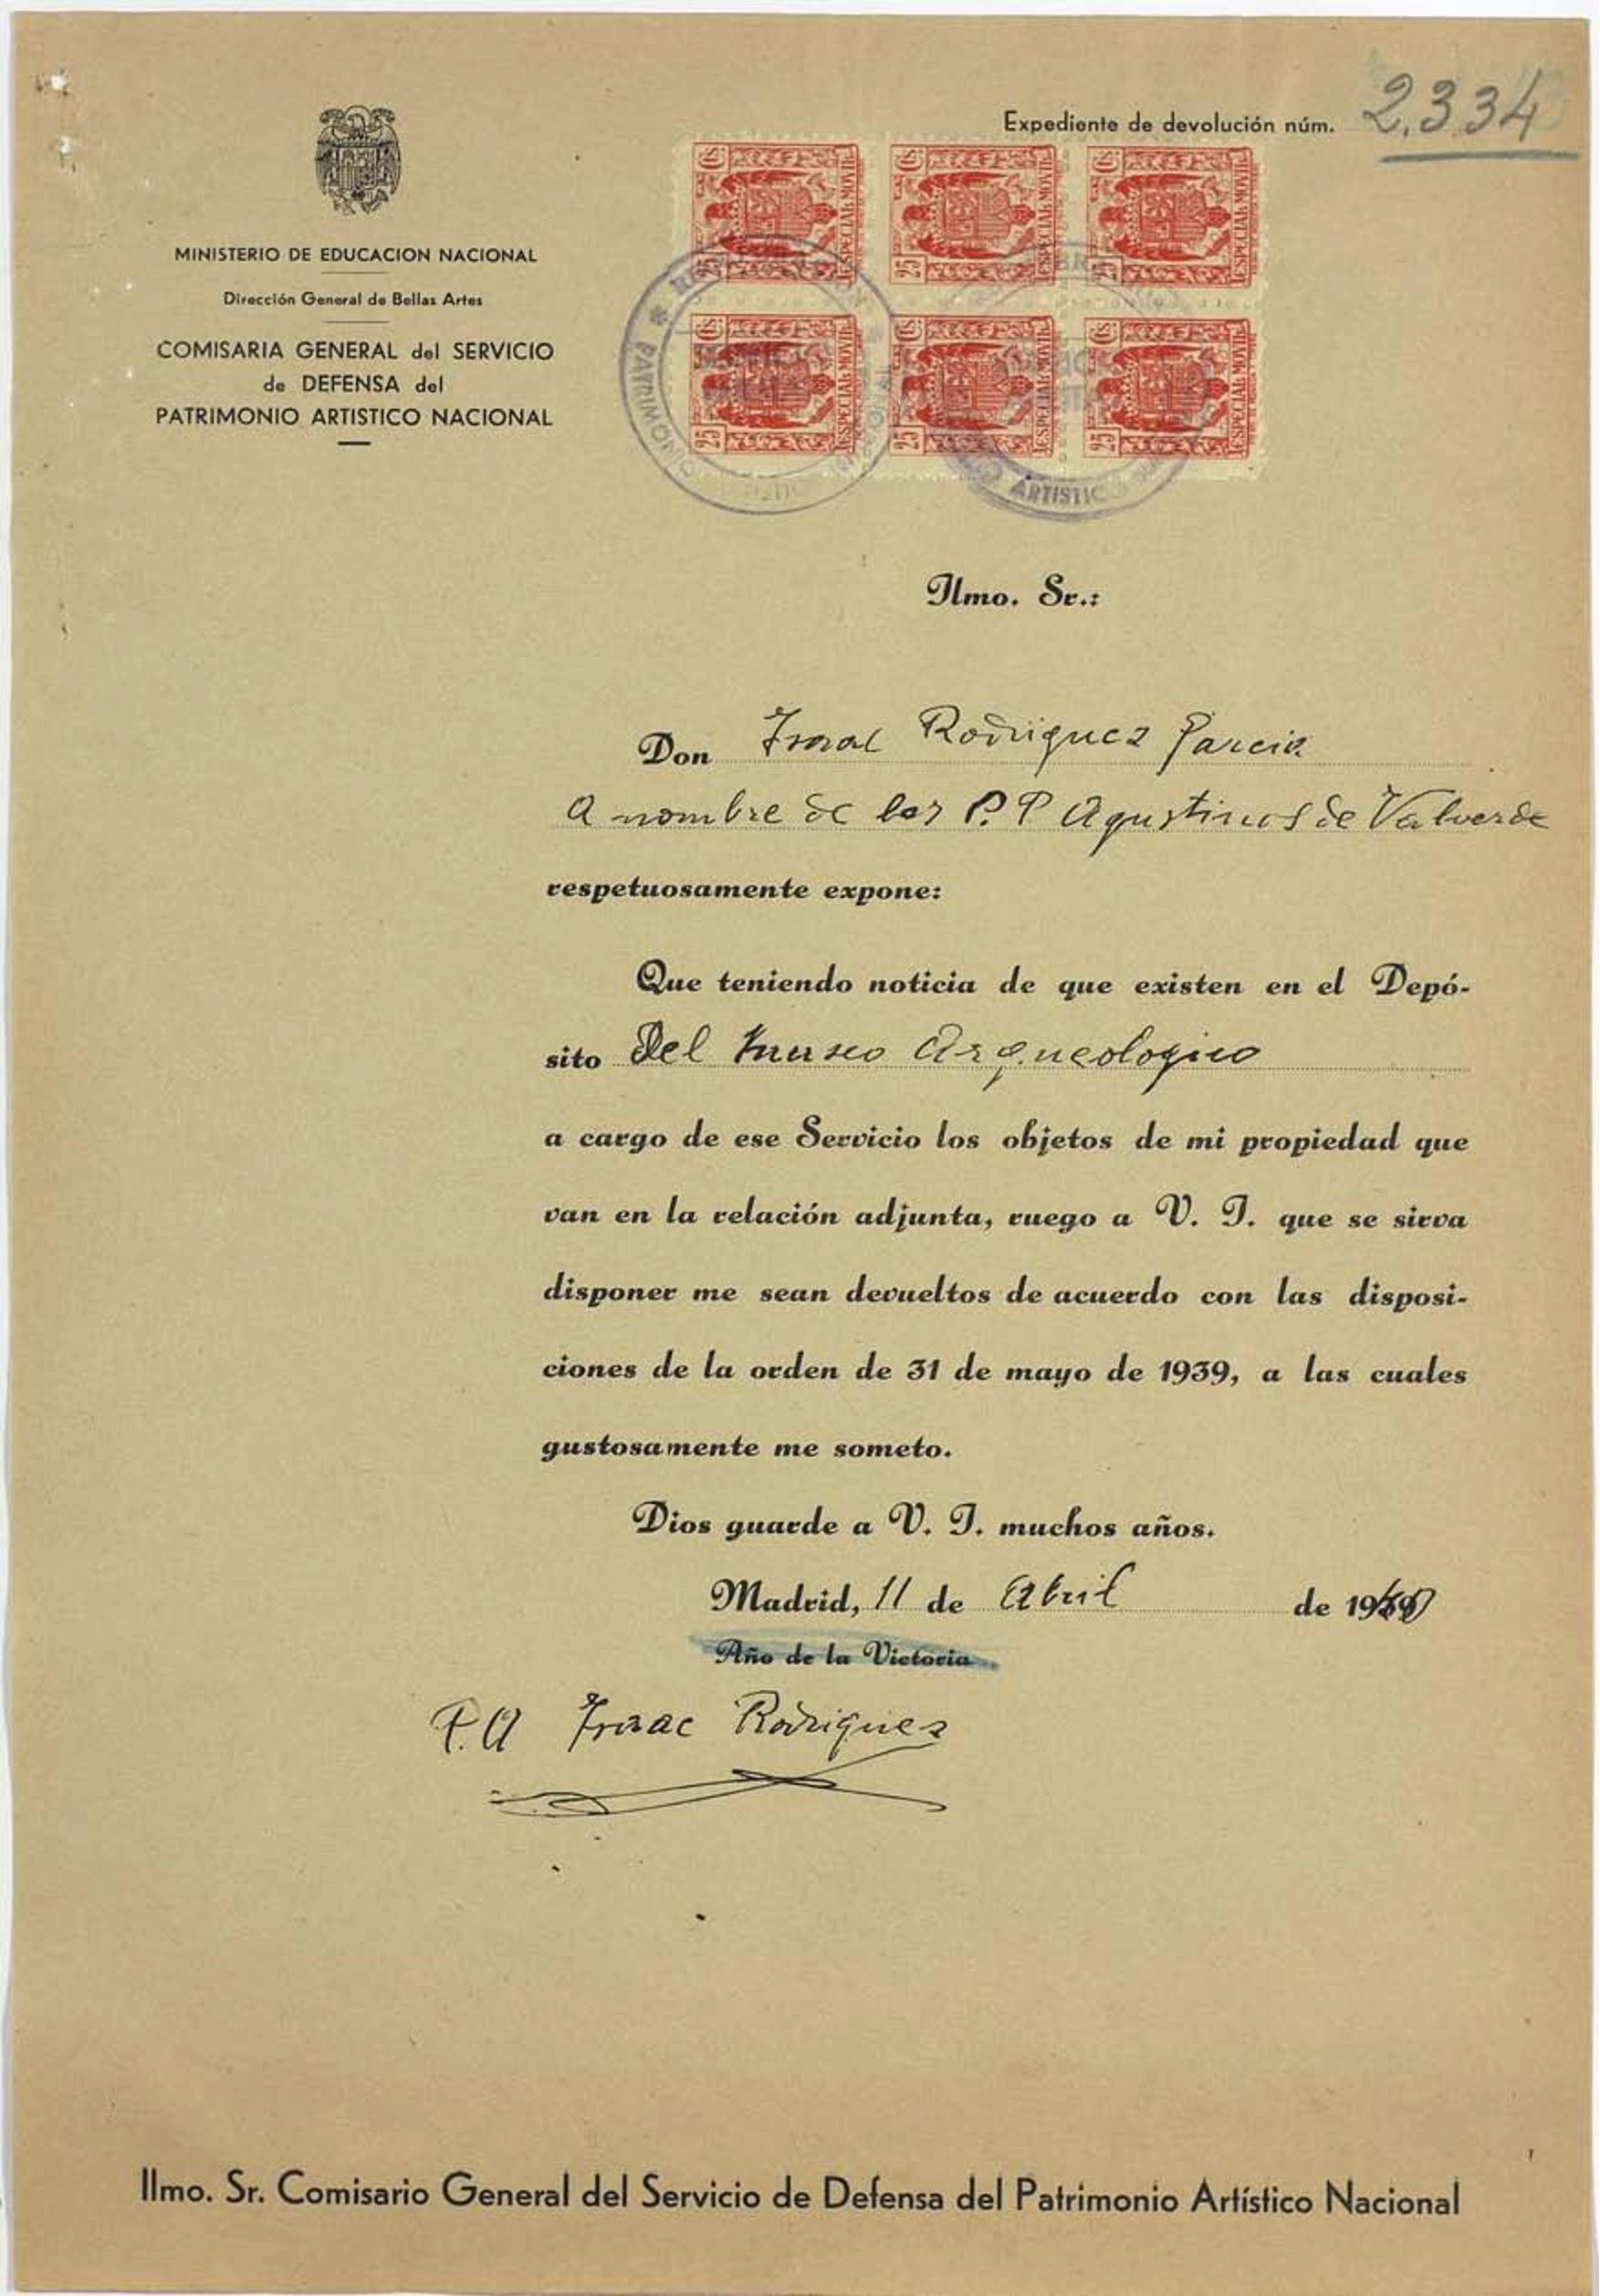 Expediente de devolución núm. 2.334
MINISTERIO DE EDUCACION NACIONAL
Dirección General de Bellas Artes
COMISARIA GENERAL del SERVICIO
de DEFENSA del
PATRIMONIO ARTISTICO NACIONAL
25 Cts. ESPECIAL MOVIL
25 Cts. ESPECIAL MOVIL
25 Cts. ESPECIAL MOVIL
25 Cts. ESPECIAL MOVIL
25 Cts. ESPECIAL MOVIL
25 Cts. ESPECIAL MOVIL
PATRIMONIO
ARTISTICO
Ilmo. Sr.:
Don Isaac Rodriguez Garcia
a nombre de los P.P Agustinos de Valverde
respetuosamente expone:
Que teniendo noticia de que existen en el Depó-
sito del Museo Arqueologico
a cargo de ese Servicio los objetos de mi propiedad que
van en la relación adjunta, ruego a V. I. que se sirva
disponer me sean devueltos de acuerdo con las disposi-
ciones de la orden de 31 de mayo de 1939, a las cuales
gustosamente me someto.
Dios guarde a V. I. muchos años.
Madrid, 11 de Abril de 1940
Año de la Victoria
P.A Isaac Rodriguez
Ilmo. Sr. Comisario General del Servicio de Defensa del Patrimonio Artístico Nacional